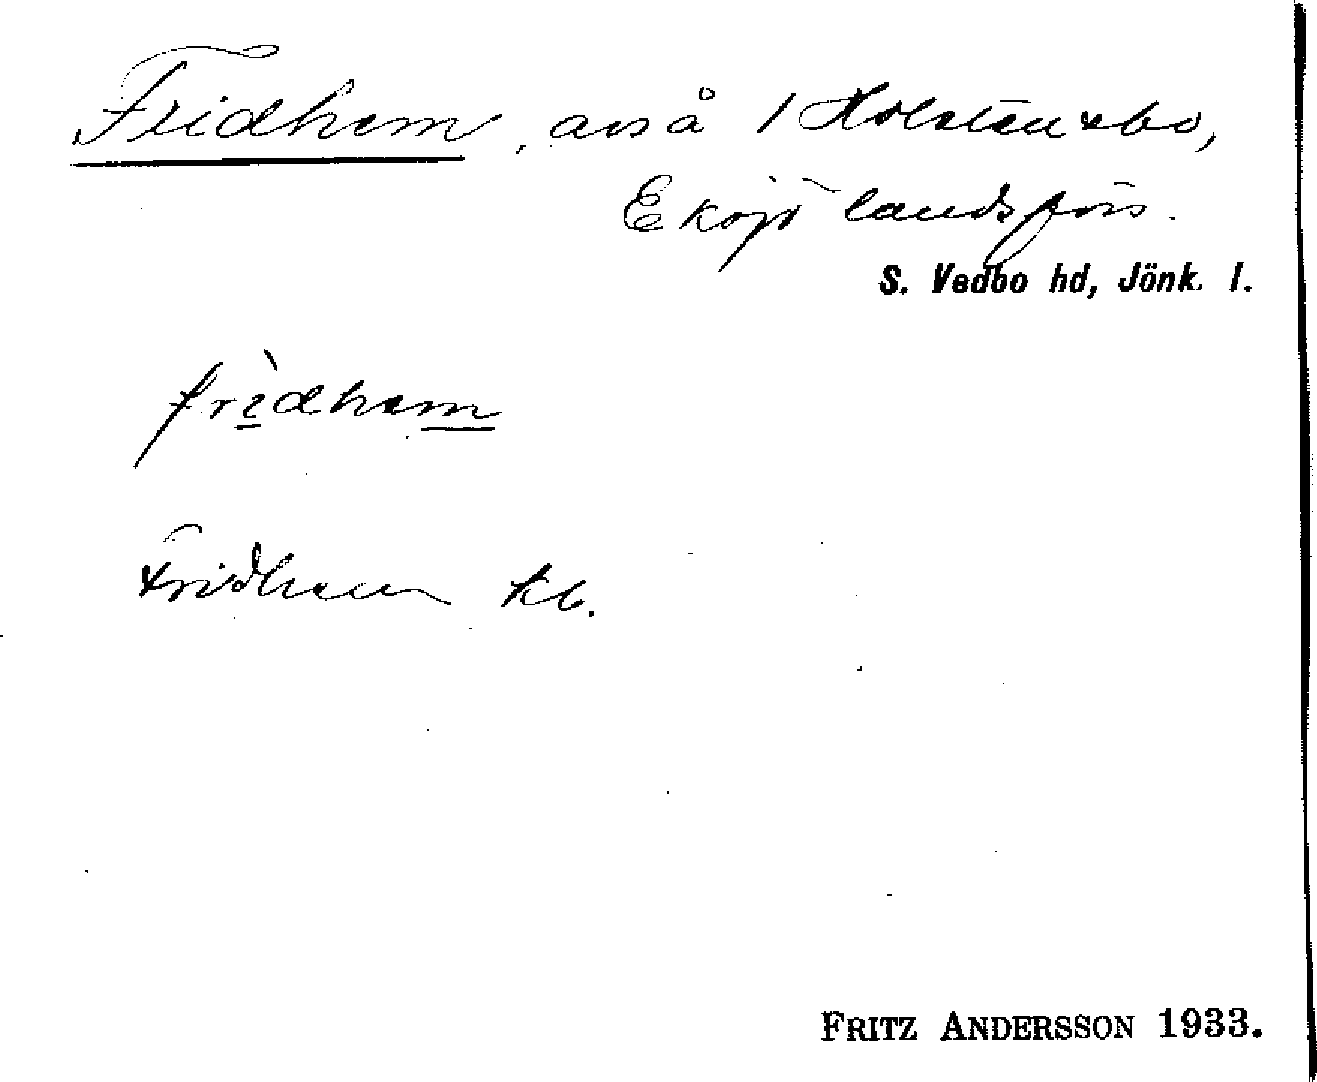 Fridhem, avs å 1 Holstensbo,
Eksjö landsförs.
S. Vedbo hd, Jönk. l.
frìdhem
Fridhem kb.
FRITZ ANDERSSON 1933.